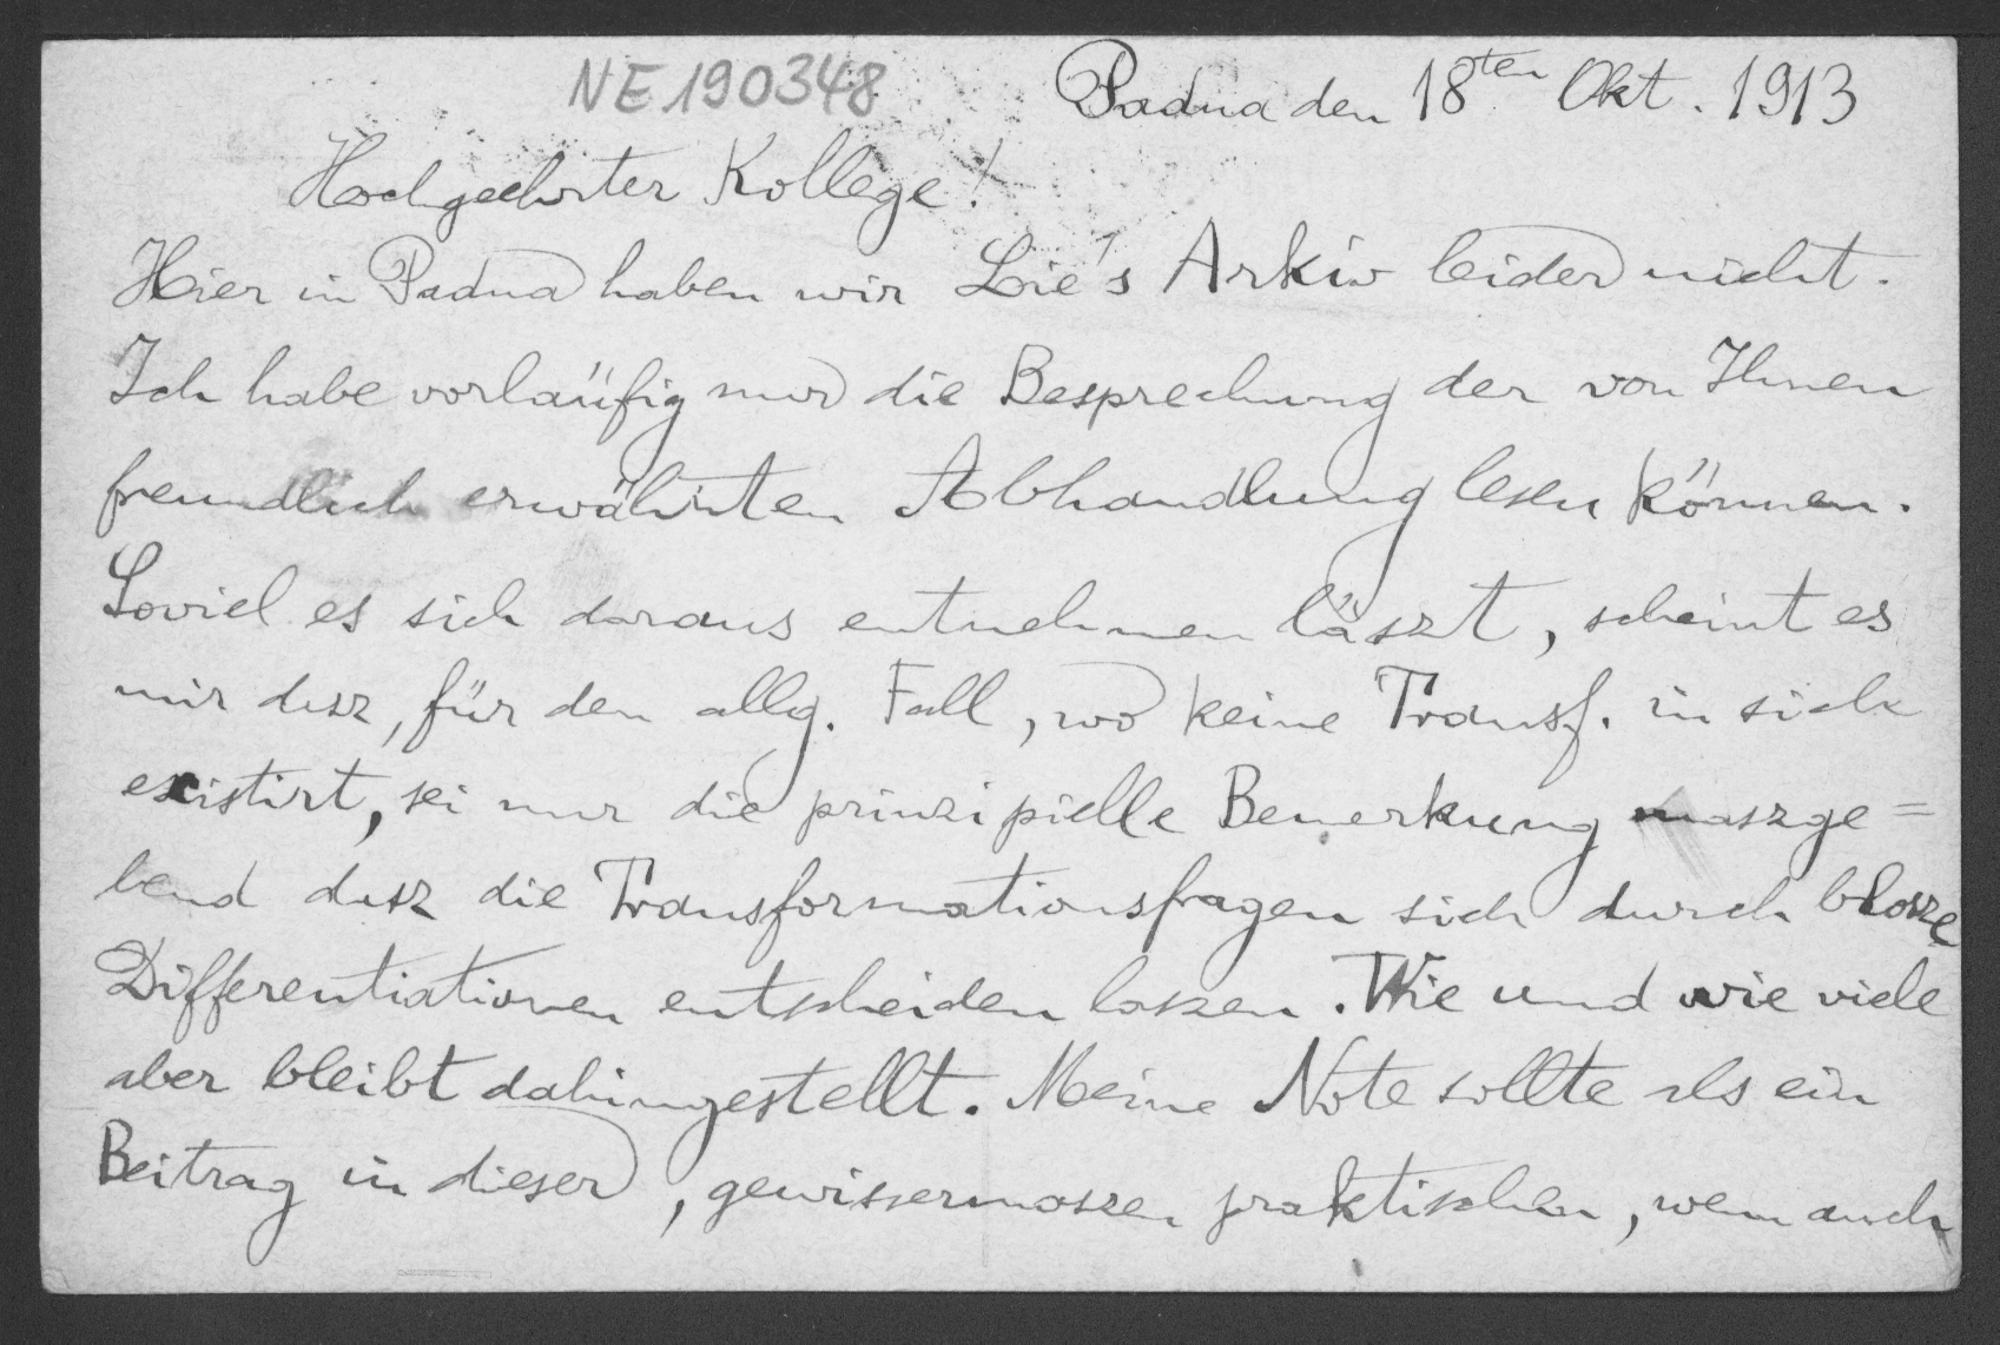 NE 190348
Padua den 18ten Okt. 1913
Hochgeehrter Kollege!
Hier in Padua haben wir Lie's Arkiv leider nicht.
Ich habe vorläufig nur die Besprechung der von Ihnen
freundlich erwähnten Abhandlung lesen können.
Soviel es sich daraus entnehmen läszt, scheint es
mir dasz, für den allg. Fall, wo keine Transf. in sich
existirt, sei nur die prinzipielle Bemerkung maszge=
bend dasz die Transformationsfragen sich durch blosze
Differentiationen entscheiden laszen. Wie und wie viele
aber bleibt dahingestellt. Meine Note sollte als ein
Beitrag in dieser, gewissermaszen praktischen, wenn auch